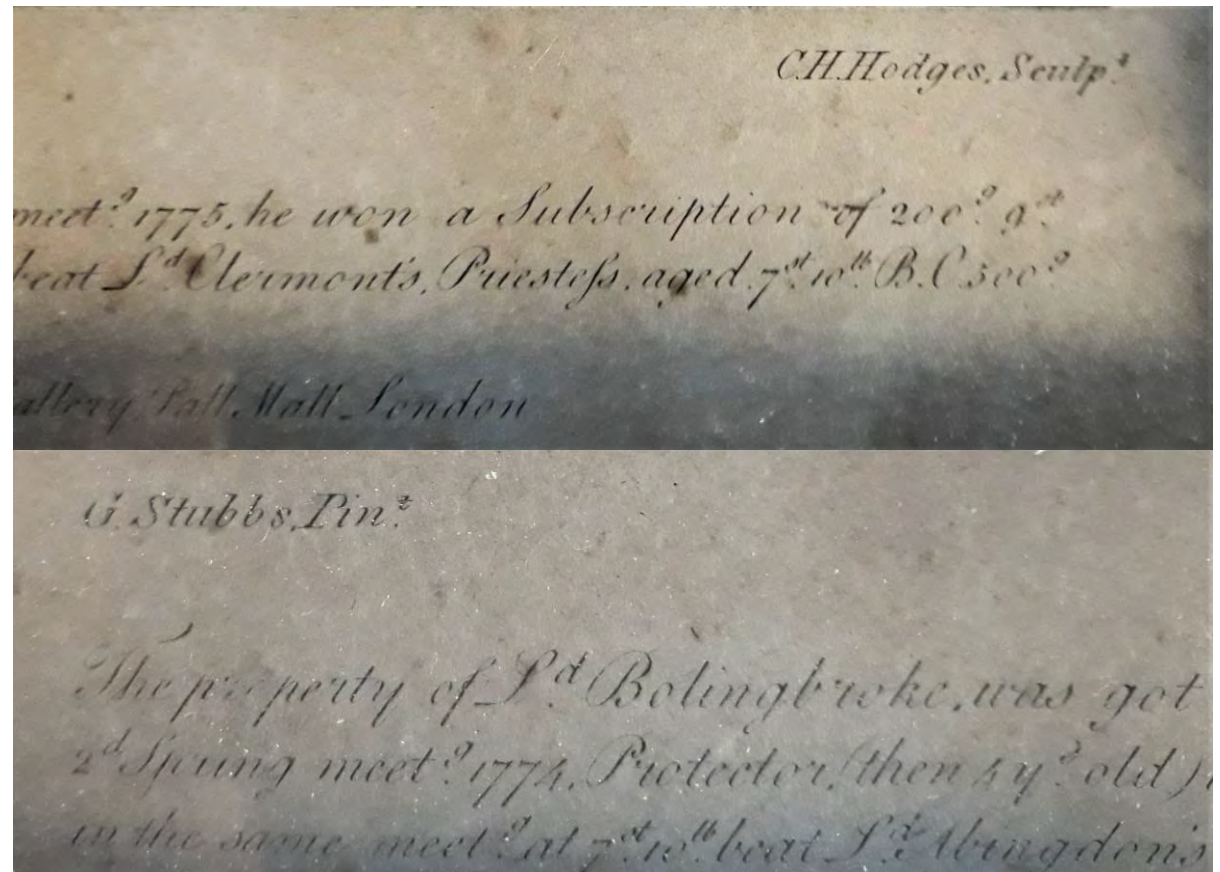 C.H.Hodges, Sculpt
meetg 1775, he won a Subscription of 200gs 9st
beat Ld Clermont's, Priestess, aged, 7st 10lb B.C 500gs
allery Pall Mall London
G. Stubbs, Pint
The property of Ld Bolingbroke, was got
2d Spring meetg 1774, Protector, (then 4 ys old)
in the same meetg at 7st 10lb beat Ld Abingdon's